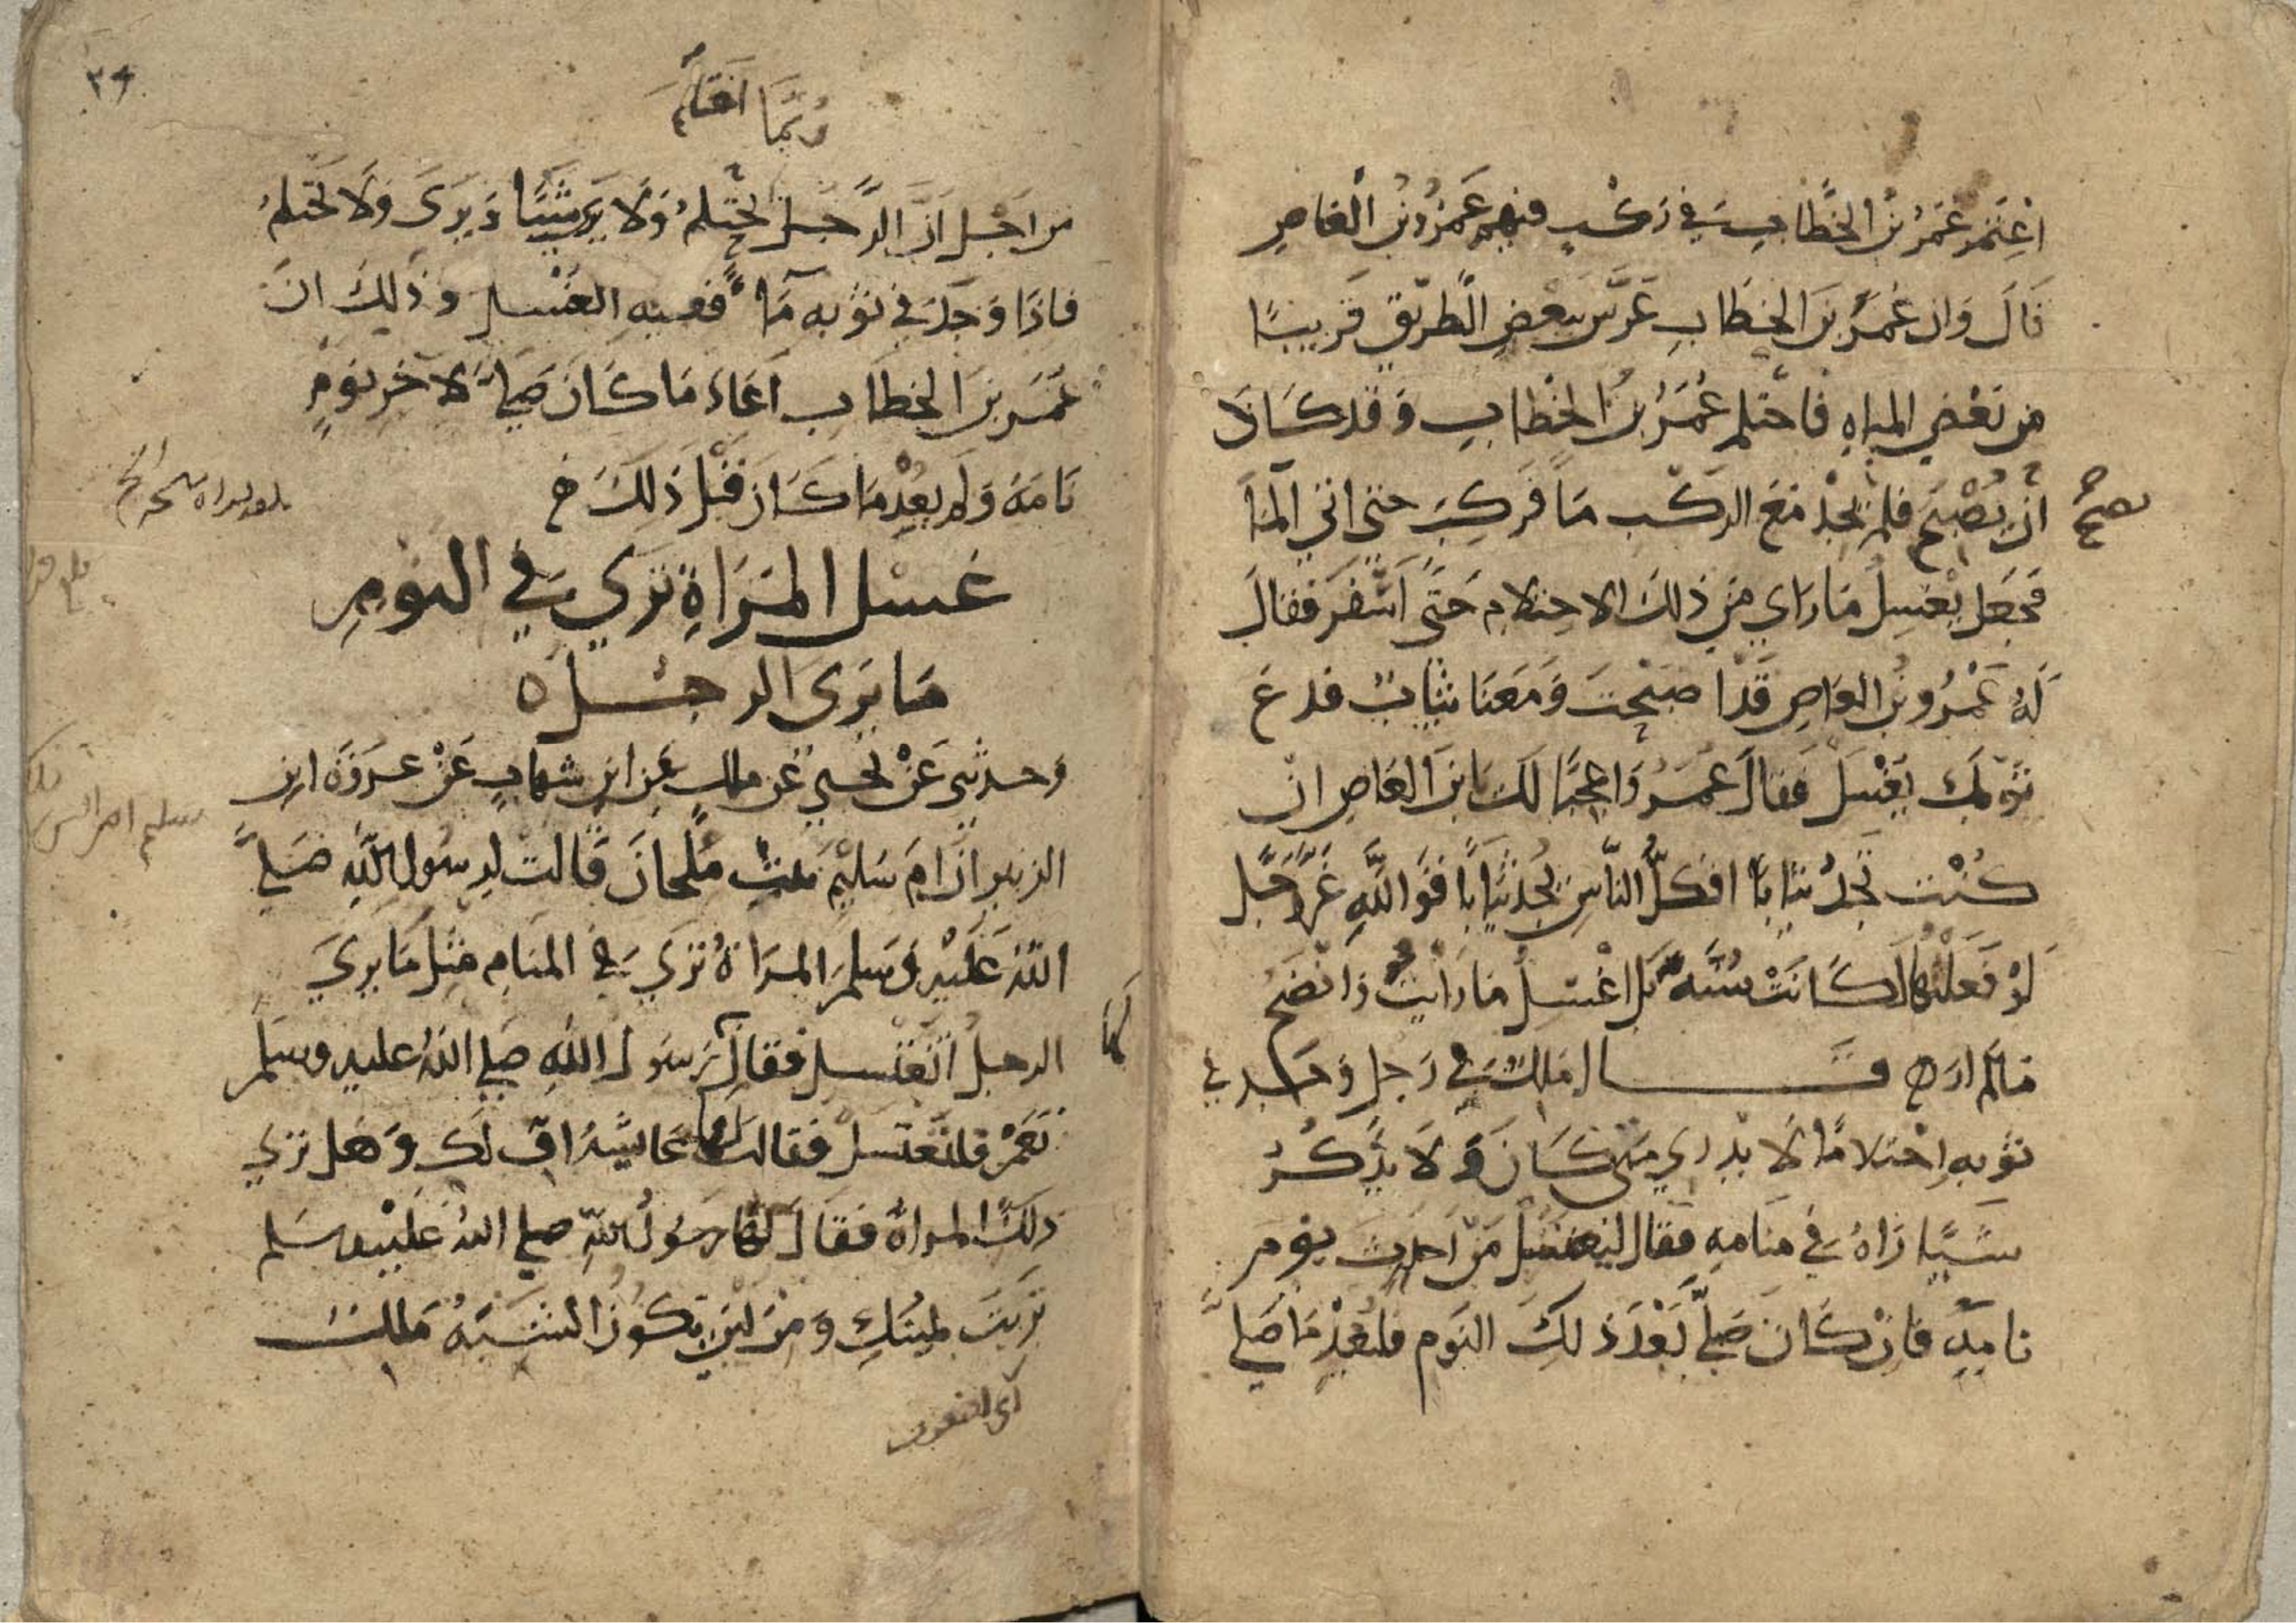 اعْتَمَرَ عُمَرُ بْنُ الخَطَّابِ في رَكْبٍ فيهم عَمْرُو بْنُ الْعَاصِ
قَالَ وَان عُمَرَ بنَ الخَطَابِ عَرَّسَ ببَعْضِ الطَّرِيقِ قَرِيبًا
مِن بَعْضِ المياهِ فَاحْتلم عُمَرُ بنُ الخَطابِ وَقَد كَادَ
أنْ يُصْبِحَ فلم يَجِدْ مَعَ الركْب مَا فَرَكِبَ حتى اتى المَا
نصح
فَجعَل يغْسِلُ مَا رَاي مِن ذلكَ الاحتلامِ حَتى أسْفرَ فقالَ
لَهُ عَمْرُو بنُ العَاصِ قَد اصْبَحْتَ وَمَعَنَا ثِيَابٌ فدع
ثَوْبَكَ يُغْسَل فقالَ عُمَرُ وَاعجَبًا لَكَ يَا بنَ العَاصِ ان
كُنْتَ تَجدُ ثيابًا افَكلُّ النَّاسِ يَجدُ ثِيَابًا فَوَاللَّهِ عَزَّ وَجَل
لَوْ فعَلتُهَا لَكَانَتْ سُنَّةً بَل اغْسلُ مَا رَايْتُ وَانْضَحُ
مَا لم ارَ قَال مَالكٌ في رَجل وَجَد في
ثوْبهِ احْتلامًا لَا يدري متى كَانَ وَلا يذْكُرُ
شَيًا رَاهُ في مَنَامهِ فقال ليغتسل مِن احدَثِ نوم
نامهِ فَان كَانَ صَلَّى بَعْدَ ذلكَ النوم فليُعِدْ مَا صَلَّى
٣٩
رُبَّمَا احْتَلَمَ
مِن اجْل انَّ الرَّجُل يَحْتلمُ وَلا يَرى شَيًا وَيَرَى وَلا يَحْتلمُ
فاذَا وَجَدَ في ثوبه مَاءً فعليه الغُسل وذَلِكَ انَ
عُمَرَ بنَ الخطاب اعَادَ مَا كَانَ صَلَّى لآخرِ نوْمٍ
نَامَهُ وَلم يعِدْ مَا كَانَ قَبْلَ ذَلِكَ خ
غسْل المَرَاةِ تَرَى في النومِ
مَا يَرَى الرجُل ه
وَحدثني عَنْ يَحيى عَن مالك عَن ابن شهابٍ عَنْ عروَة ابن
الزبير انَّ امَ سُليْم بنت مِلْحانَ قالت لرسُول اللهِ صَلَّى
اللهُ عَلَيْهِ وَسَلمَ المرَاةُ تَرَى في المنَامِ مِثلَ مَا يرَى
كما
الرجلُ أتَغْتَسل فقَالَ رَسُول اللهِ صَلى اللهُ عليه وسلمَ
نَعَمْ فلتَغْتسل فقالت لها عَايشةُ افٍّ لَكِ وَهَل ترَى
ذلكَ المراةُ فقَالَ لهَا رَسُولُ اللهِ صلى اللهُ عَليْه وسَلم
تَرِبَتْ يَمينُكِ وَمِنْ ايْنَ يكُونُ الشَبَهُ مَالك